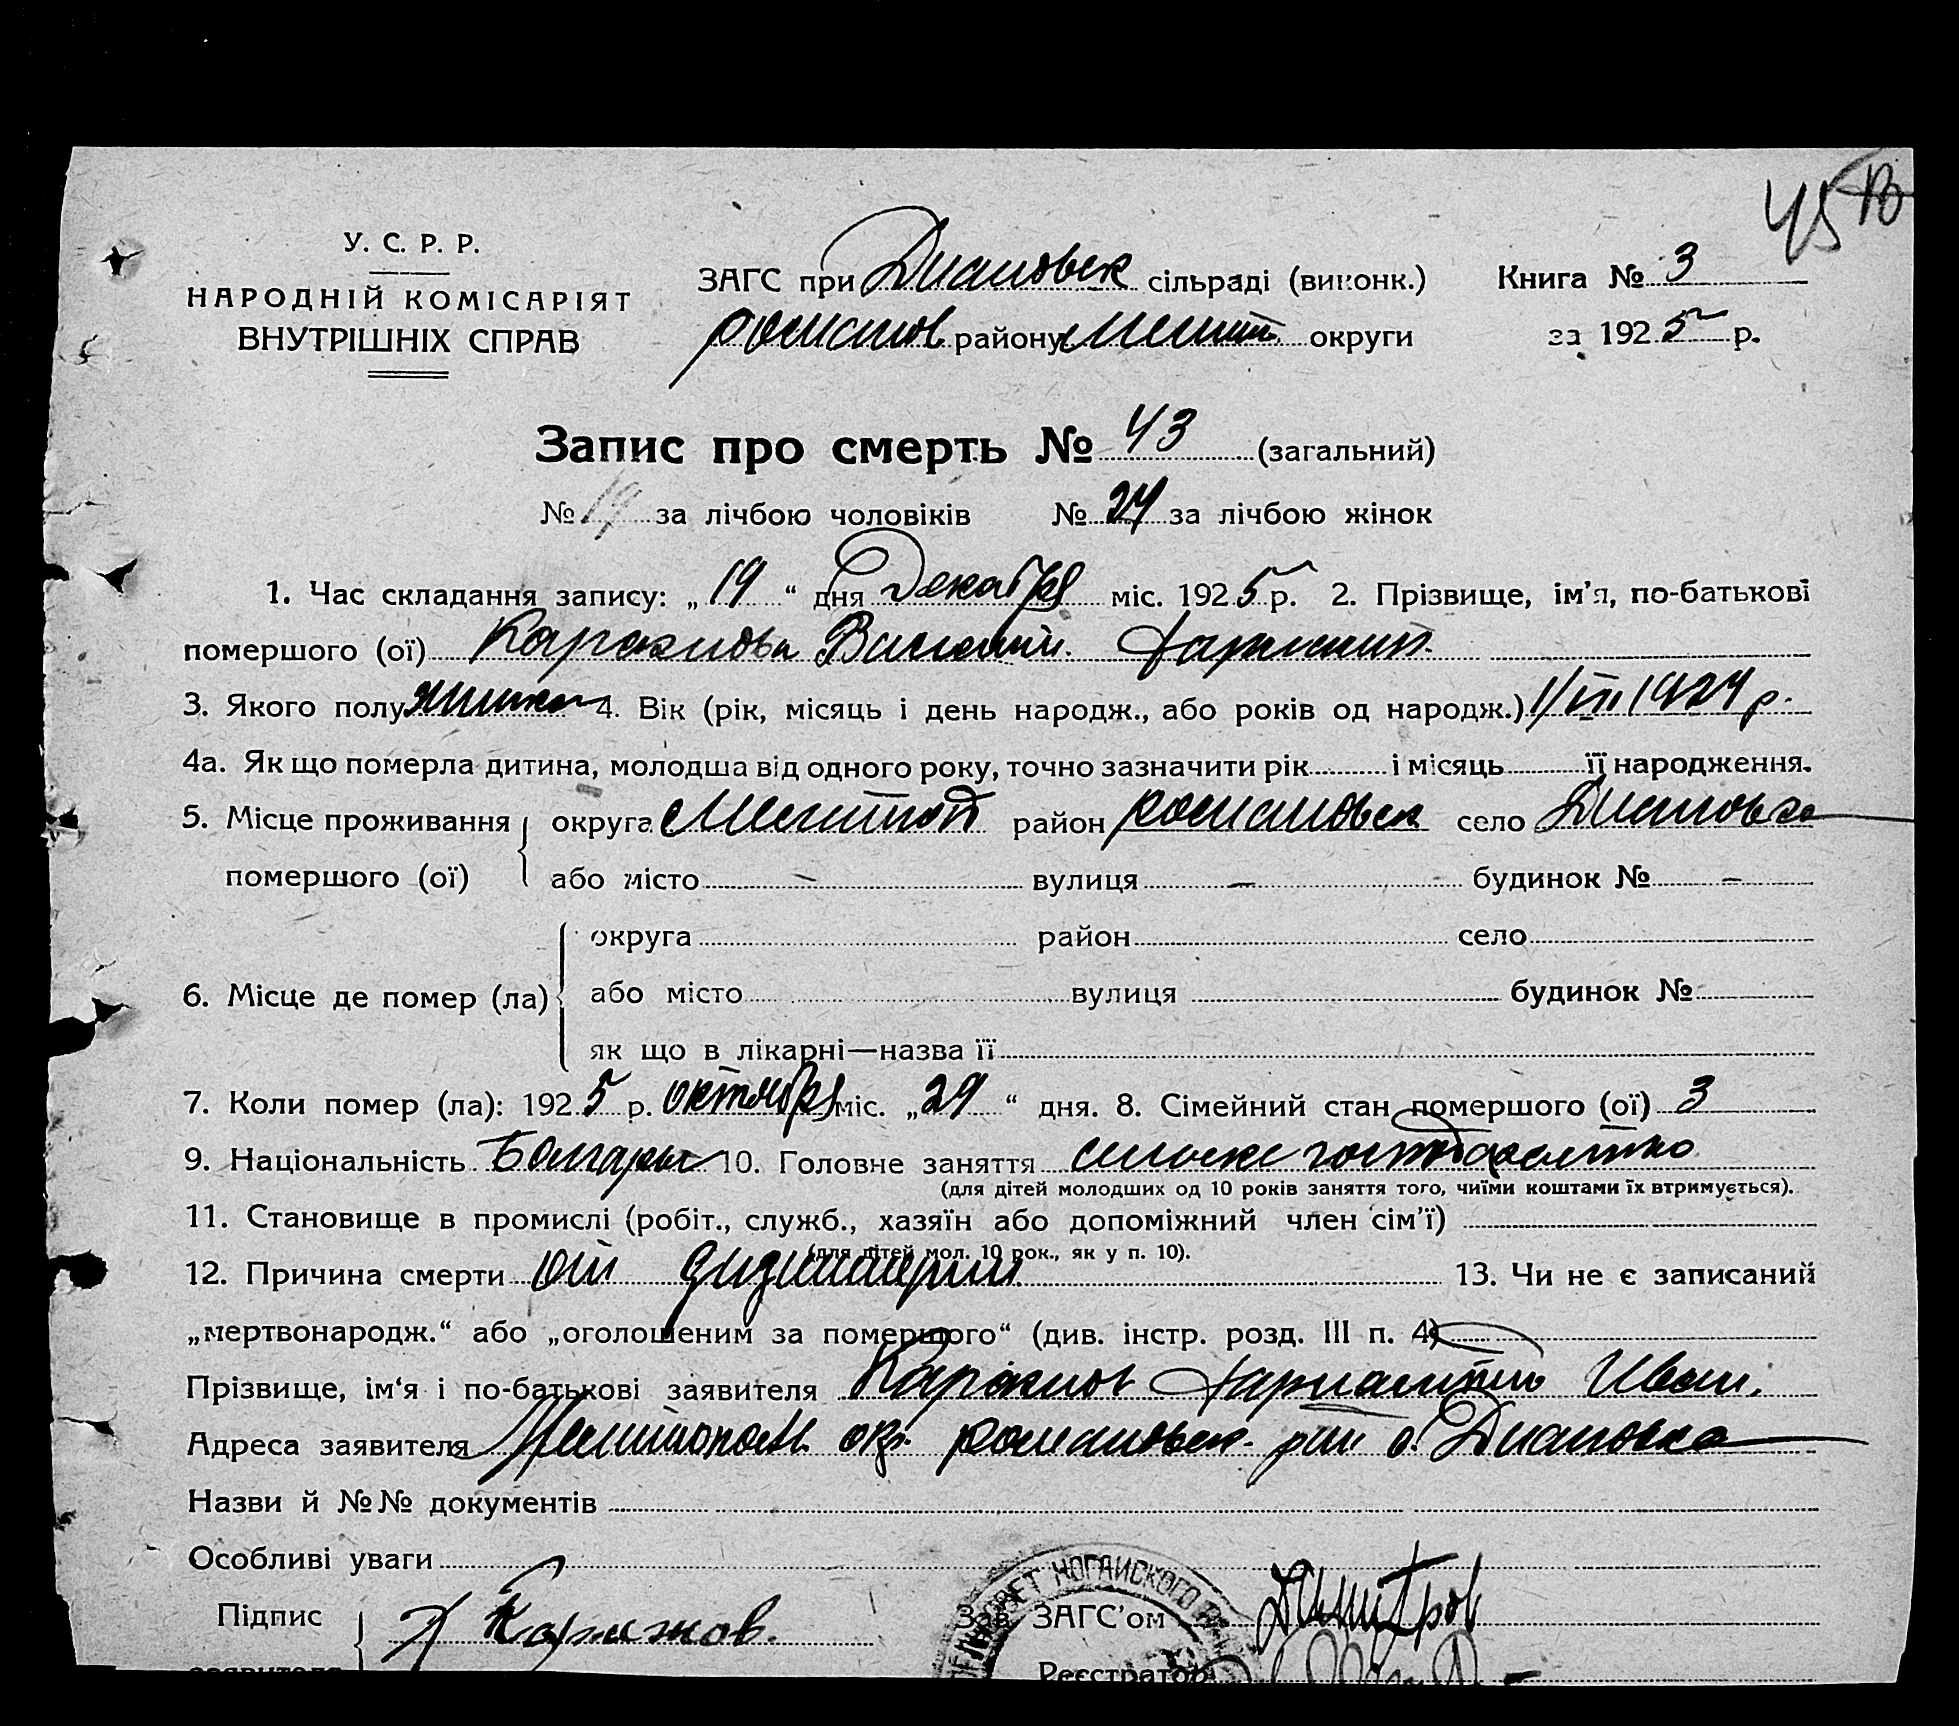 45
У. С. Р. Р.
НАРОДНІЙ КОМІСАРІЯТ
ВНУТРІШНІХ СПРАВ
ЗАГС при Диановск сільраді (виконк.)
романов району Мелит округи
Книга № 3
за 1925 р.
Запис про смерть № 43 (загальний)
№ 19 за лічбою чоловіків № 24 за лічбою жінок
1. Час складання запису: „19“ дня Декабря міс. 1925 р. 2. Прізвище, ім’я, по-батькові
помершого (ої)
3. Якого полу 4. Вік (рік, місяць і день народж., або років од народж.) 1/VII 1924 р.
4а. Як що померла дитина, молодша від одного року, точно зазначити рік і місяць її народження.
5. Місце проживання помершого (ої) округа Мелитоп район романовск село Диановка
або місто – вулиця – будинок № –
6. Місце де помер (ла) округа район село
або місто вулиця будинок №
як що в лікарні—назва її
7. Коли помер (ла): 1925 р. октября міс. „29“ дня. 8. Сімейний стан помершого (ої) 3
9. Національність Болгары 10. Головне заняття
(для дітей молодших од 10 років заняття того, чиїми коштами їх втримується).
11. Становище в промислі (робіт., служб., хазяїн або допоміжний член сім’ї)
(для дітей мол. 10 рок., як у п. 10).
12. Причина смерти от дизинтерии 13. Чи не є записаний
„мертвонародж.“ або „оголошеним за помершого“ (див. інстр. розд. III п. 4)
Прізвище, ім‘я і по-батькові заявителя Иван.
Адреса заявителя Мелитопол окр. романовск р о. Диановка
Назви й №№ документів
Особливі уваги
Підпис заявителя
Зав. ЗАГС’ом Димитров
Реєстратор
СОВЕТ НОГАЙСКОГО